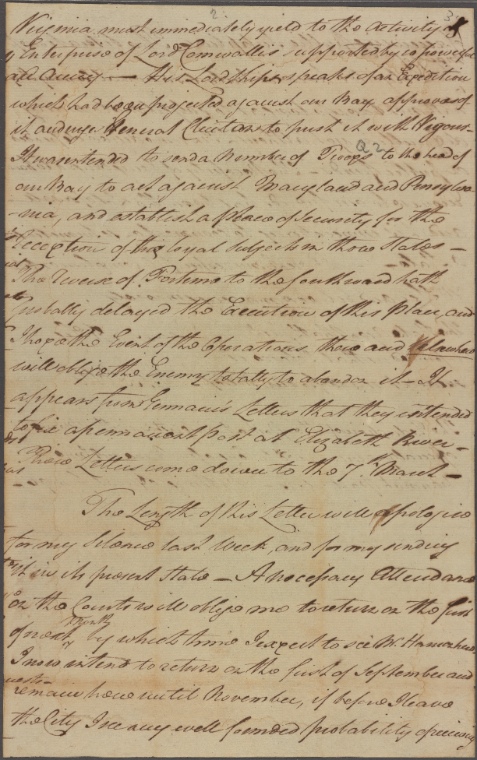 2. 3
Virginia must immediately yield to the Activity &
Enterprise of Lord Cornwallis supported by so powerful
an Army — His Lordship speaks of an Expedition
which had been projected against our Bay approves of
it and urges General Clinton to push it with Vigour —
It was intended to send a Number of Troops to the head of
our Bay to act against Maryland and Pensylva
-nia, and establish a place of Security for the
reception of the loyal Subjects in those States —
The Reverse of Fortune to the Southward hath
probably delayed the Execution of this Plan, and
I hope the Event of the Operations there and elsewhere
will oblige the Enemy totally to abandon it — It
appears from Germain's Letters that they intended
to fix a permanent post at Elizabeth River —
These Letters come down to the 7th March —
The Length of this Letter will apologize
for my Silence last Week, and for my sending
it in its present State — A necessary Attendance
on the Courts will oblige me to return on the first
of next Month by which time I expect to see Mr Hanson here
I now intend to return on the first of September and
remain here until November, if before I leave
the City I see any well founded probability of